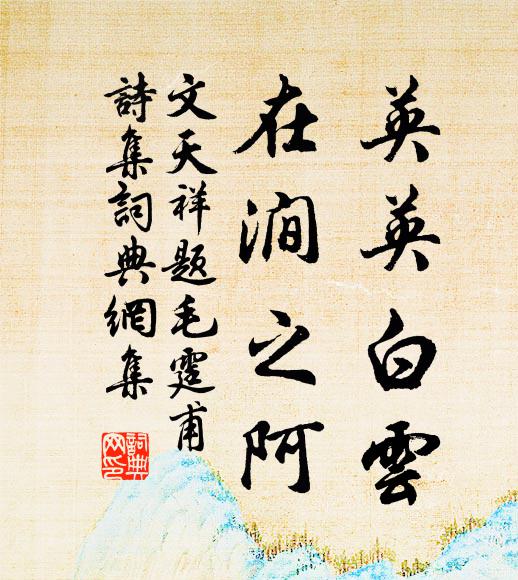 英英白雲
在澗之阿
文天祥題毛霆甫
詩集詞典網集
詞典
网印